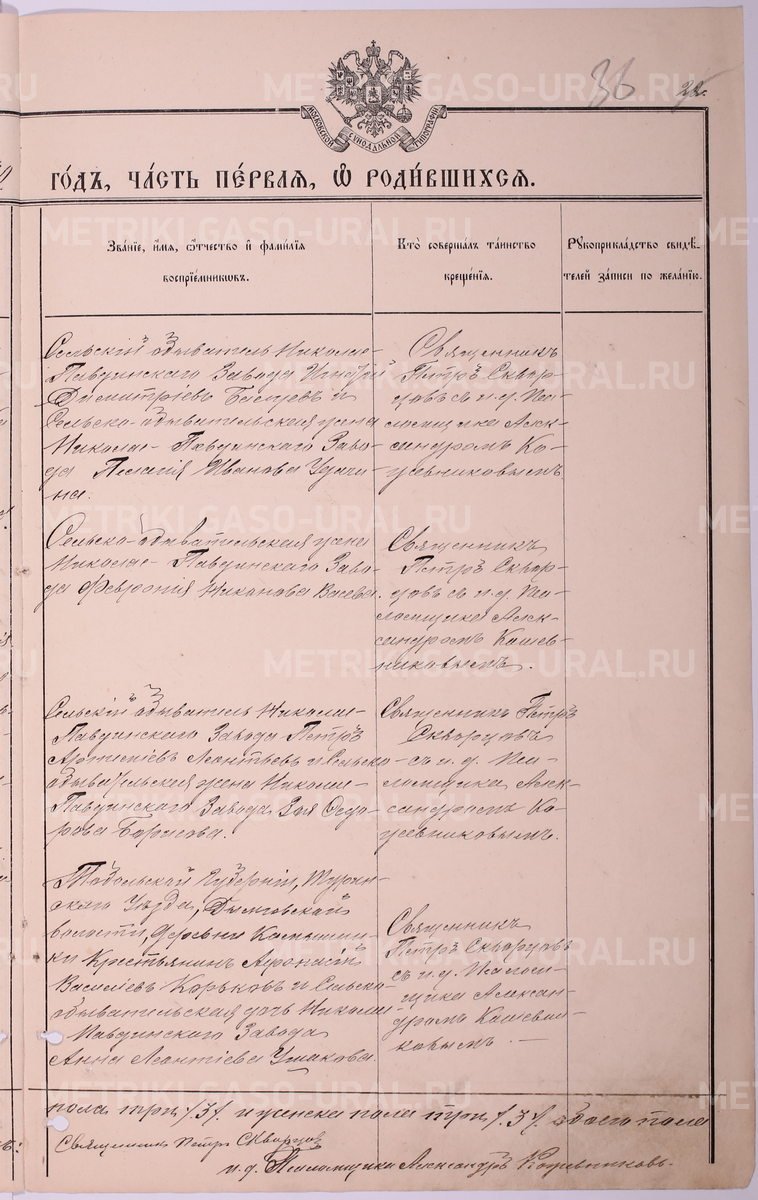 36
МОСКОВСКОЙ СѴНОДАЛЬНОЙ ТИПОГРАФІИ
ГО́ДЪ, ЧА́СТЬ ПЕ́РВАЯ, Ѡ РОДИ́ВШИХСЯ.
Зва́нїе, и́мя, ѻ҆́тчество и҆ фами́лїя
воспрїе́мниковъ.
Кто̀ соверша́лъ та́инство
креще́нїя.
Рꙋкоприкла́дство свидѣ́-
телей за́писи по жела́нїю.
Сельскій обыватель Николае-
Павдинскаго Завода
Димитріевъ и
Сельско-обывательская жена
Николае-Павдинскаго Заво-
да Пелагія Иванова
на.
Священникъ
Петръ Сквор-
цовъ съ и.д. Пса-
ломщика Алек-
сандромъ Ко-
жевниковымъ.
Сельско-обывательская жена
Николае-Павдинскаго Заво-
да Февронія Никанова
Священникъ
Петръ Сквор-
цовъ съ и.д. Пса-
ломщика Алек-
сандромъ Кожев-
никовымъ.
Сельскій обыватель Николае-
Павдинскаго Завода Петръ
Артеміевъ Леонтьевъ и Сельско-
обывательская жена Николае-
Павдинскаго Завода Зоя Ѳедо-
рова Борисова.
Священникъ Петръ
Скворцовъ
съ и.д. Пса-
ломщика Алек-
сандромъ Ко-
жевниковымъ.
Тобольской Губерніи, Турин-
скаго Уѣзда,
волости, Деревни
ки Крестьянинъ Афонасій
Васильевъ Корьковъ и Сельско-
обывательская дочь Николае-
Павдинскаго Завода
Анна Леонтіева Ушакова.
Священникъ
Петръ Скворцовъ
съ и.д. Псалом-
щика Алексан-
дромъ Кожевни-
ковымъ.
пола три /3/ и женска пола три /3/ обоего пола
Священникъ Петръ Скворцовъ
и.д. Псаломщика Александръ Кожевниковъ.
METRIKI.GASO-URAL.RU